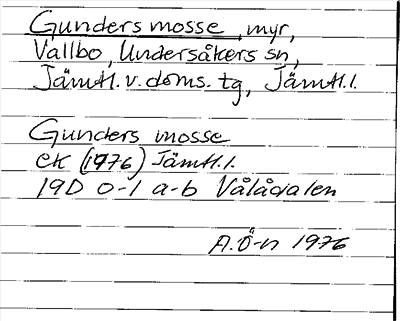 Gunders mosse, myr,
Vallbo, Undersåkers sn,
Jämtl. v. doms. tg, Jämtl. l.
Gunders mosse
ek (1976) Jämtl. l.
19D 0-1 a-b Vålådalen
A.Ö-n 1976